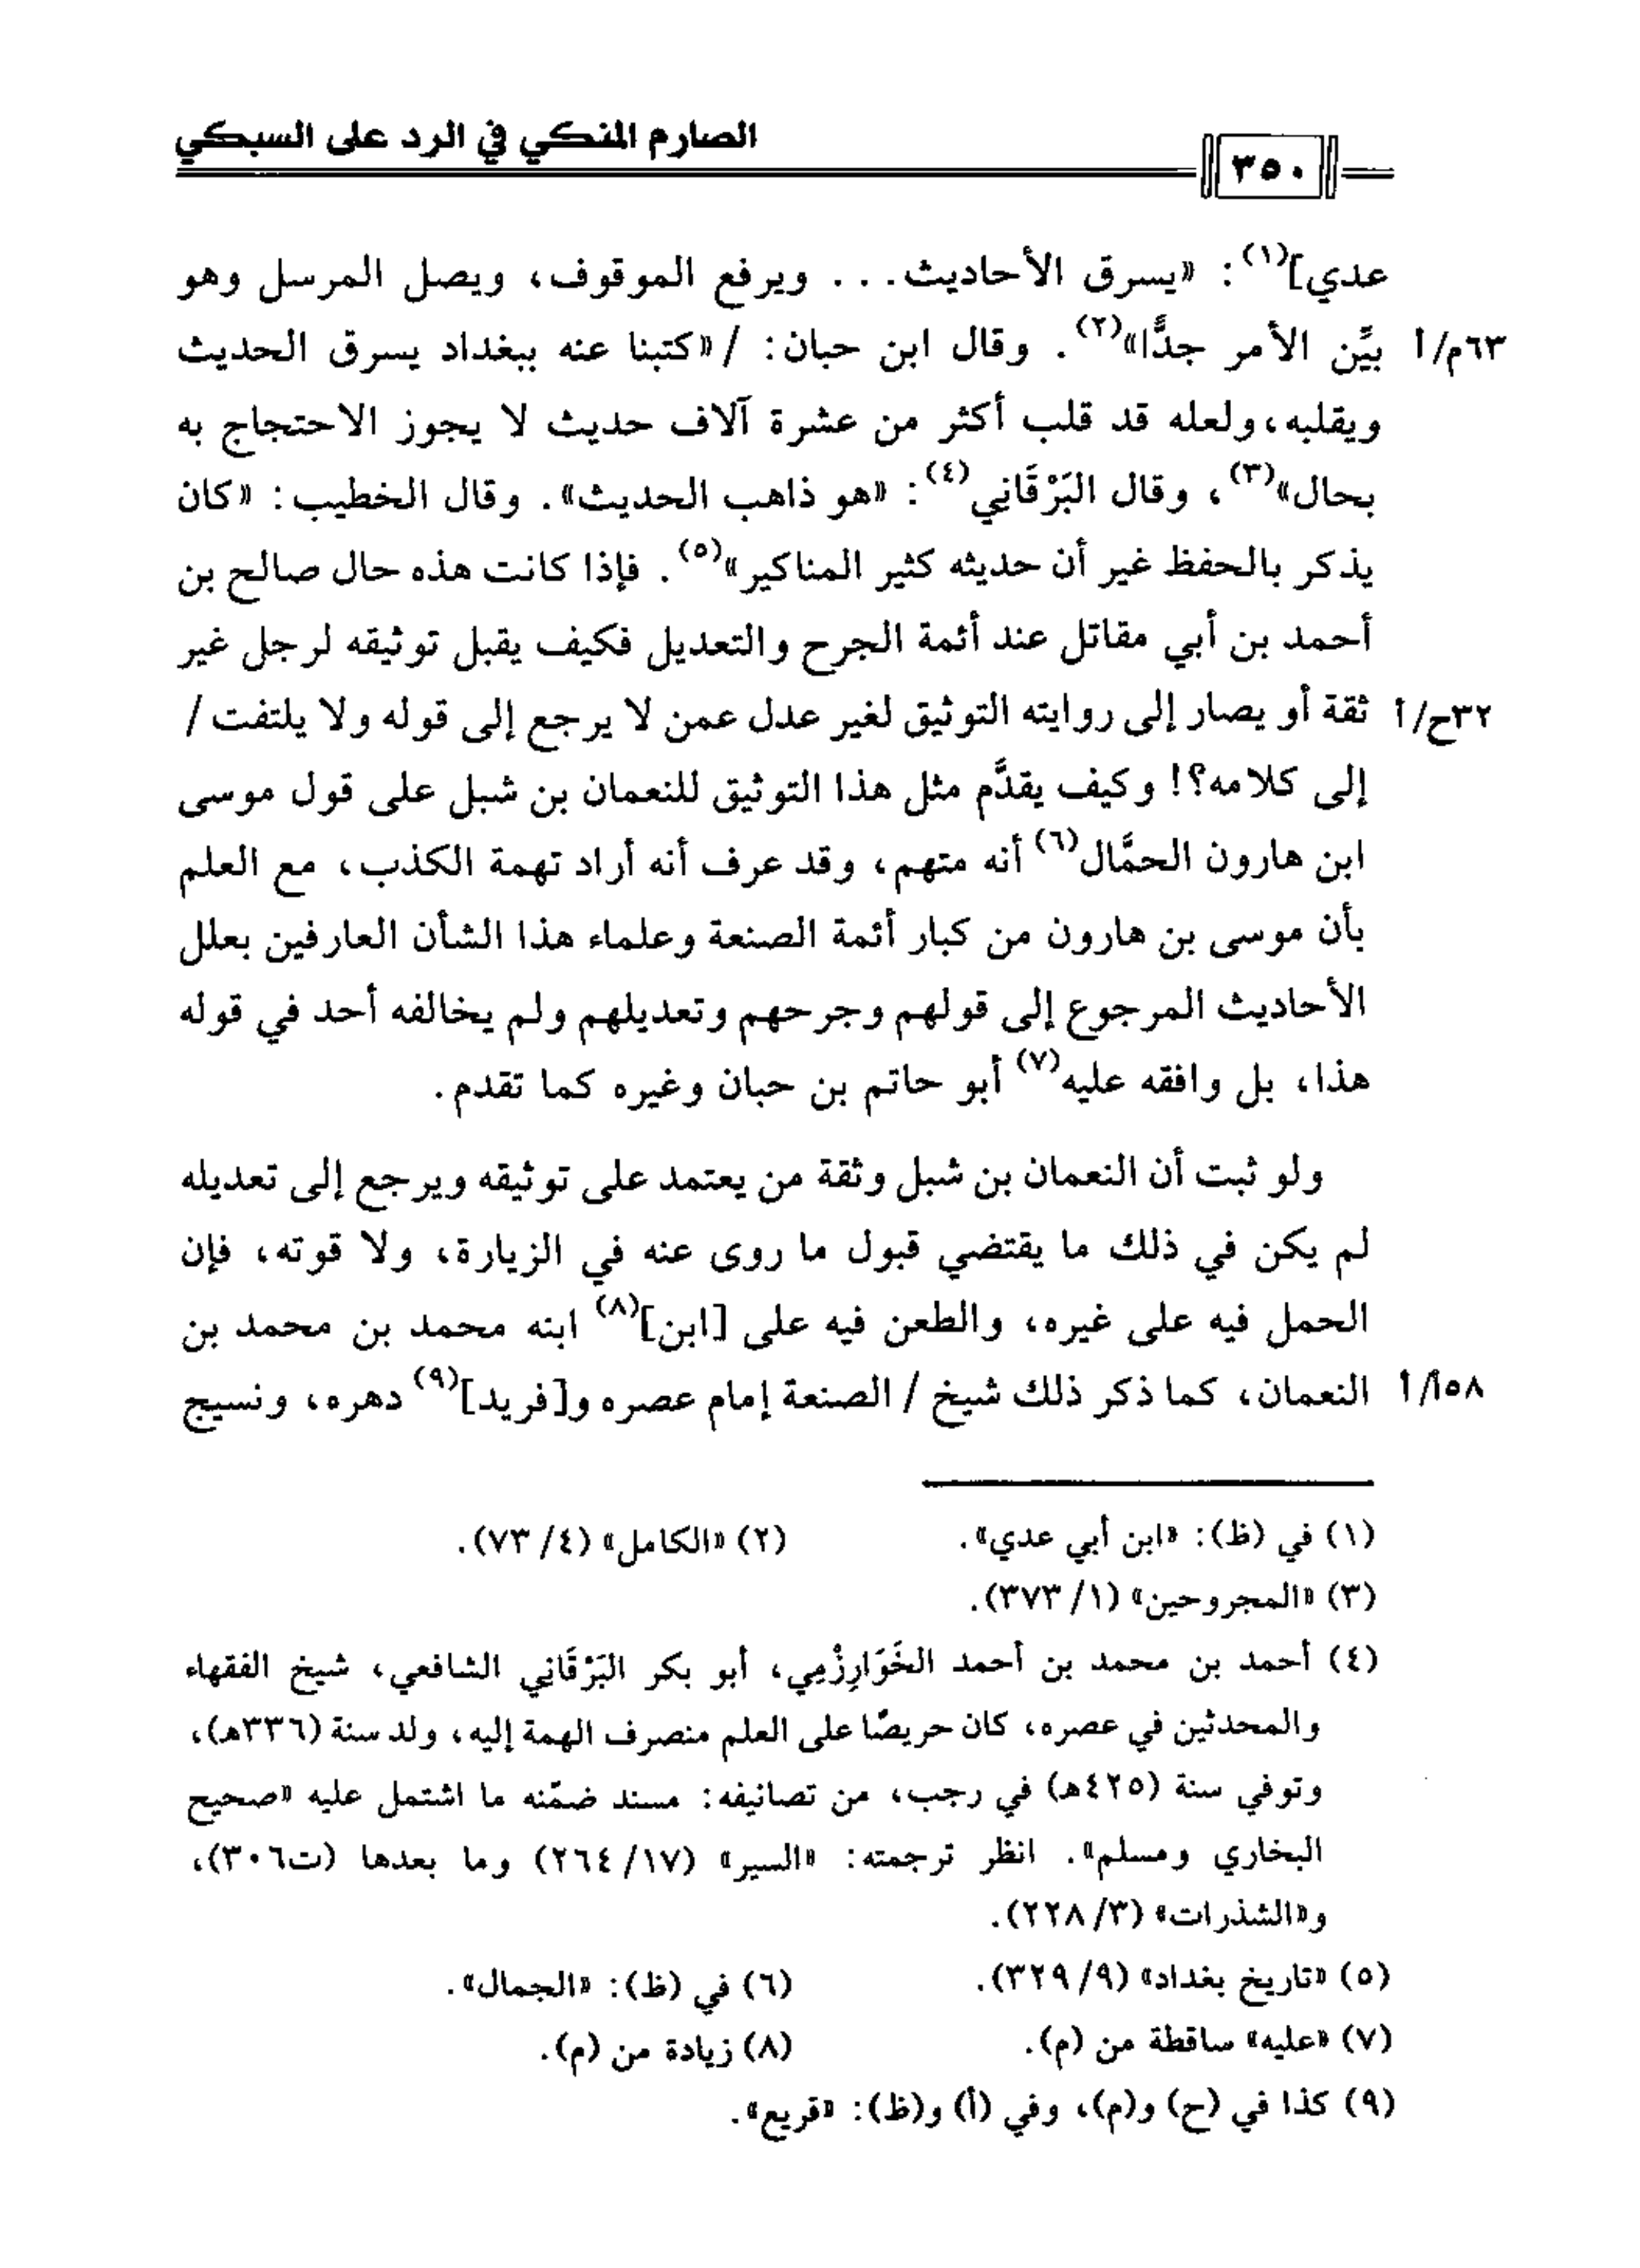 الصارم المنكي في الرد على السبكي
٣٥٠
عدي](١): «يسرق الأحاديث... ويرفع الموقوف، ويصل المرسل وهو
٦٣م/أ بيِّن الأمر جدًّا»(٢). وقال ابن حبان: /«كتبنا عنه ببغداد يسرق الحديث
ويقلبه، ولعله قد قلب أكثر من عشرة آلاف حديث لا يجوز الاحتجاج به
بحال»(٣)، وقال البَرْقَاني(٤): «هو ذاهب الحديث». وقال الخطيب: «كان
يذكر بالحفظ غير أن حديثه كثير المناكير»(٥). فإذا كانت هذه حال صالح بن
أحمد بن أبي مقاتل عند أئمة الجرح والتعديل فكيف يقبل توثيقه لرجل غير
٣٢ح/أ ثقة أو يصار إلى روايته التوثيق لغير عدل عمن لا يرجع إلى قوله ولا يلتفت /
إلى كلامه؟! وكيف يقدَّم مثل هذا التوثيق للنعمان بن شبل على قول موسى
ابن هارون الحمَّال(٦) أنه متهم، وقد عرف أنه أراد تهمة الكذب، مع العلم
بأن موسى بن هارون من كبار أئمة الصنعة وعلماء هذا الشأن العارفين بعلل
الأحاديث المرجوع إلى قولهم وجرحهم وتعديلهم ولم يخالفه أحد في قوله
هذا، بل وافقه عليه(٧) أبو حاتم بن حبان وغيره كما تقدم.
ولو ثبت أن النعمان بن شبل وثقة من يعتمد على توثيقه ويرجع إلى تعديله
لم يكن في ذلك ما يقتضي قبول ما روى عنه في الزيارة، ولا قوته، فإن
الحمل فيه على غيره، والطعن فيه على [ابن](٨) ابنه محمد بن محمد بن
٥٨أ/أ النعمان، كما ذكر ذلك شيخ / الصنعة إمام عصره و[فريد](٩) دهره، ونسيج
(١) في (ظ): «ابن أبي عدي». (٢) «الكامل» (٤/ ٧٣).
(٣) «المجروحين» (١/ ٣٧٣).
(٤) أحمد بن محمد بن أحمد الخَوَارِزْمِي، أبو بكر البَرْقَاني الشافعي، شيخ الفقهاء
والمحدثين في عصره، كان حريصًا على العلم منصرف الهمة إليه، ولد سنة (٣٣٦هـ)،
وتوفي سنة (٤٢٥هـ) في رجب، من تصانيفه: مسند ضمّنه ما اشتمل عليه «صحيح
البخاري ومسلم». انظر ترجمته: «السير» (١٧/ ٢٦٤) وما بعدها (ت٣٠٦)،
و«الشذرات» (٣/ ٢٢٨).
(٥) «تاريخ بغداد» (٩/ ٣٢٩). (٦) في (ظ): «الجمال».
(٧) «عليه» ساقطة من (م). (٨) زيادة من (م).
(٩) كذا في (ح) و(م)، وفي (أ) و(ظ): «قريع».